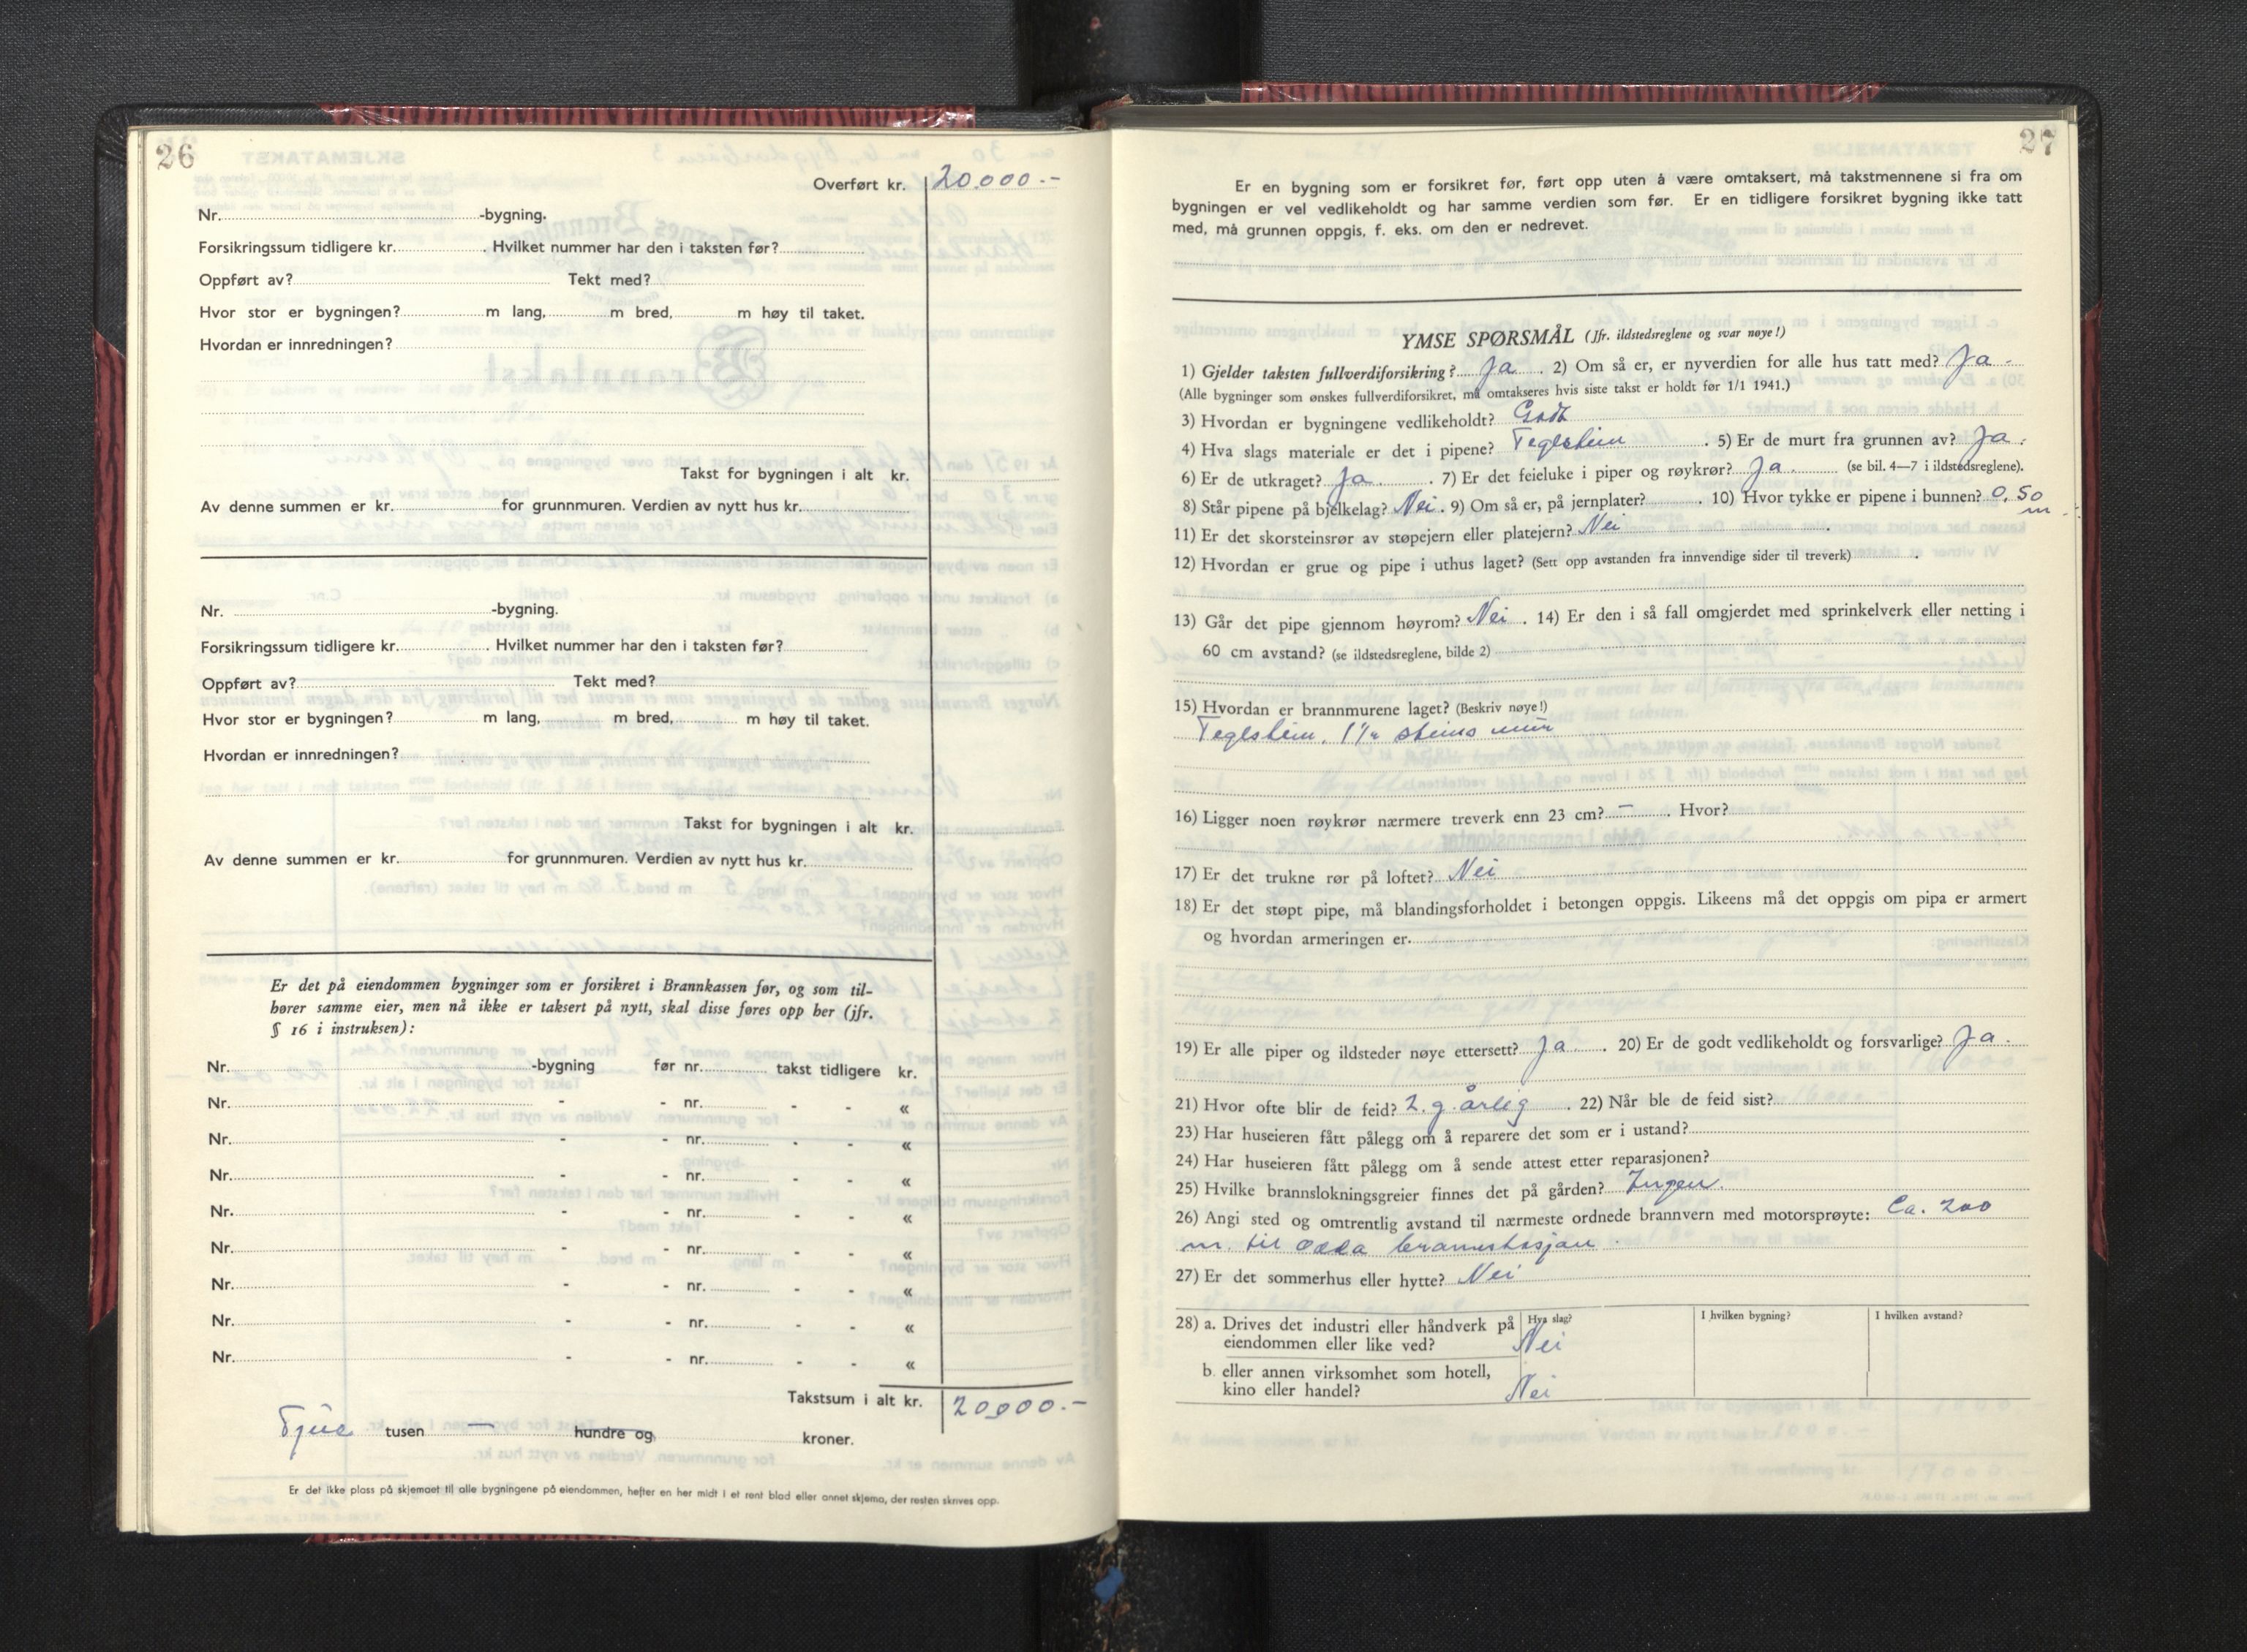 26
Overført kr. 20.000.-
Nr. -bygning.
Forsikringssum tidligere kr. . Hvilket nummer har den i taksten før?
Oppført av? Tekt med?
Hvor stor er bygningen? m lang, m bred, m høy til taket.
Hvordan er innredningen?
Takst for bygningen i alt kr.
Av denne summen er kr. for grunnmuren. Verdien av nytt hus kr.
Nr. -bygning.
Forsikringssum tidligere kr. . Hvilket nummer har den i taksten før?
Oppført av? Tekt med?
Hvor stor er bygningen? m lang, m bred, m høy til taket.
Hvordan er innredningen?
Takst for bygningen i alt kr.
Av denne summen er kr. for grunnmuren. Verdien av nytt hus kr.
Er det på eiendommen bygninger som er forsikret i Brannkassen før, og som til-
hører samme eier, men nå ikke er taksert på nytt, skal disse føres opp her (jfr.
§ 16 i instruksen):
Nr. -bygning før nr. takst tidligere kr.
Nr. - - nr. - - «
Nr. - - nr. - - «
Nr. - - nr. - - «
Nr. - - nr. - - «
Nr. - - nr. - - «
Nr. - - nr. - - «
Nr. - - nr. - - «
Nr. - - nr. - - «
Takstsum i alt kr. 20000.-
Tjue tusen — hundre og kroner.
Er det ikke plass på skjemaet til alle bygningene på eiendommen, hefter en her midt i et rent blad eller annet skjema, der resten skrives opp.
27
Er en bygning som er forsikret før, ført opp uten å være omtaksert, må takstmennene si fra om
bygningen er vel vedlikeholdt og har samme verdien som før. Er en tidligere forsikret bygning ikke tatt
med, må grunnen oppgis, f. eks. om den er nedrevet.
YMSE SPØRSMÅL (Jfr. ildstedsreglene og svar nøye!)
1) Gjelder taksten fullverdiforsikring? Ja . 2) Om så er, er nyverdien for alle hus tatt med? Ja -
(Alle bygninger som ønskes fullverdiforsikret, må omtakseres hvis siste takst er holdt før 1/1 1941.)
3) Hvordan er bygningene vedlikeholdt? Godt
4) Hva slags materiale er det i pipene? Teglstein . 5) Er de murt fra grunnen av? Ja .
6) Er de utkraget? Ja . 7) Er det feieluke i piper og røykrør? Ja . (se bil. 4—7 i ildstedsreglene).
8) Står pipene på bjelkelag? Nei . 9) Om så er, på jernplater? . 10) Hvor tykke er pipene i bunnen? 0,50
m -
11) Er det skorsteinsrør av støpejern eller platejern? Nei .
12) Hvordan er grue og pipe i uthus laget? (Sett opp avstanden fra innvendige sider til treverk) .
13) Går det pipe gjennom høyrom? Nei . 14) Er den i så fall omgjerdet med sprinkelverk eller netting i
60 cm avstand? (se ildstedsreglene, bilde 2)
15) Hvordan er brannmurene laget? (Beskriv nøye!)
Teglstein. 1½ steins mur
16) Ligger noen røykrør nærmere treverk enn 23 cm? — . Hvor?
17) Er det trukne rør på loftet? Nei
18) Er det støpt pipe, må blandingsforholdet i betongen oppgis. Likeens må det oppgis om pipa er armert
og hvordan armeringen er.
19) Er alle piper og ildsteder nøye ettersett? Ja . 20) Er de godt vedlikeholdt og forsvarlige? Ja .
21) Hvor ofte blir de feid? 2. g. årlig . 22) Når ble de feid sist?
23) Har huseieren fått pålegg om å reparere det som er i ustand?
24) Har huseieren fått pålegg om å sende attest etter reparasjonen?
25) Hvilke brannslokningsgreier finnes det på gården? Ingen.
26) Angi sted og omtrentlig avstand til nærmeste ordnede brannvern med motorsprøyte: Ca. 200
m. til Odda brannstasjon .
27) Er det sommerhus eller hytte? Nei
28) a. Drives det industri eller håndverk på Hva slag? I hvilken bygning? I hvilken avstand?
eiendommen eller like ved? Nei
b. eller annen virksomhet som hotell,
kino eller handel? Nei